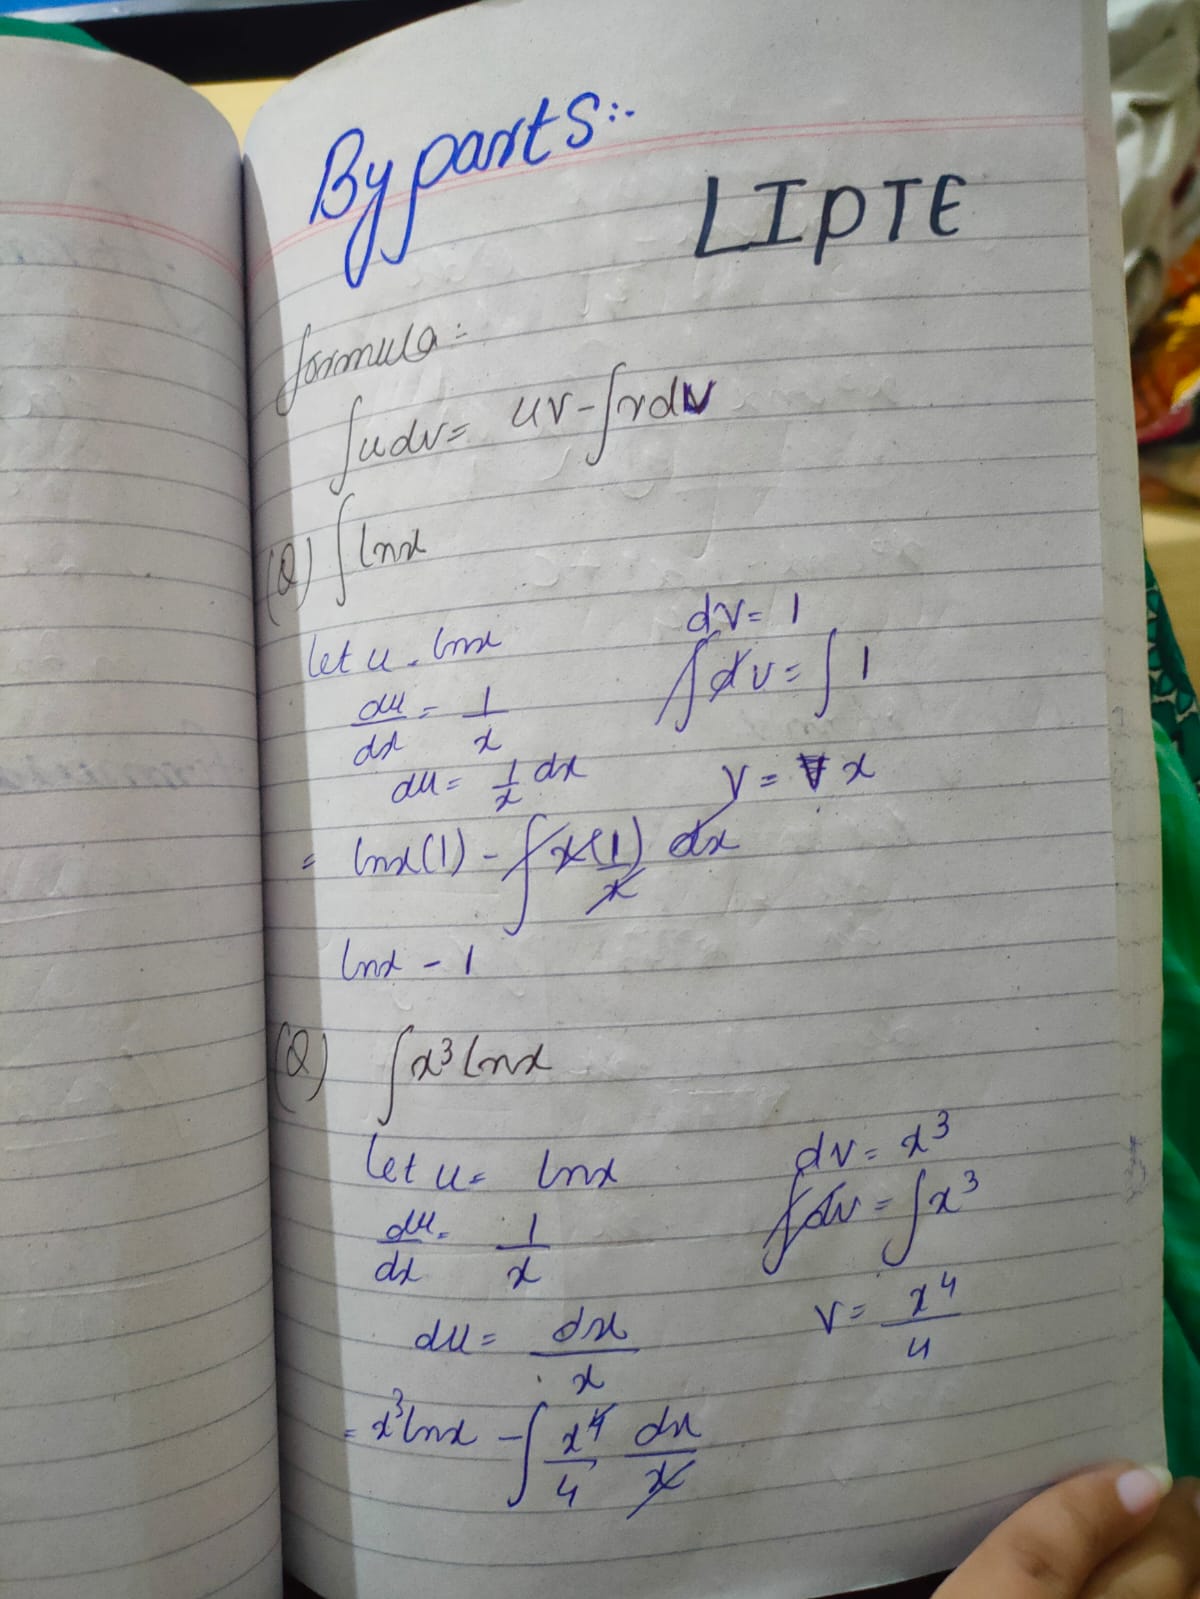 By parts:-
LIPTE
formula:
∫udv = uv - ∫vdu
(Q) ∫lnx
let u = lnx    dv = 1
du/dx = 1/x    ∫dv = ∫1
du = 1/x dx    v = x
= lnx(1) - ∫x(1/x) dx
lnx - 1
(Q) ∫x³lnx
let u = lnx    dv = x³
du/dx = 1/x    ∫dv = ∫x³
du = dx/x    v = x⁴/4
= x³lnx - ∫x⁴/4 dx/x